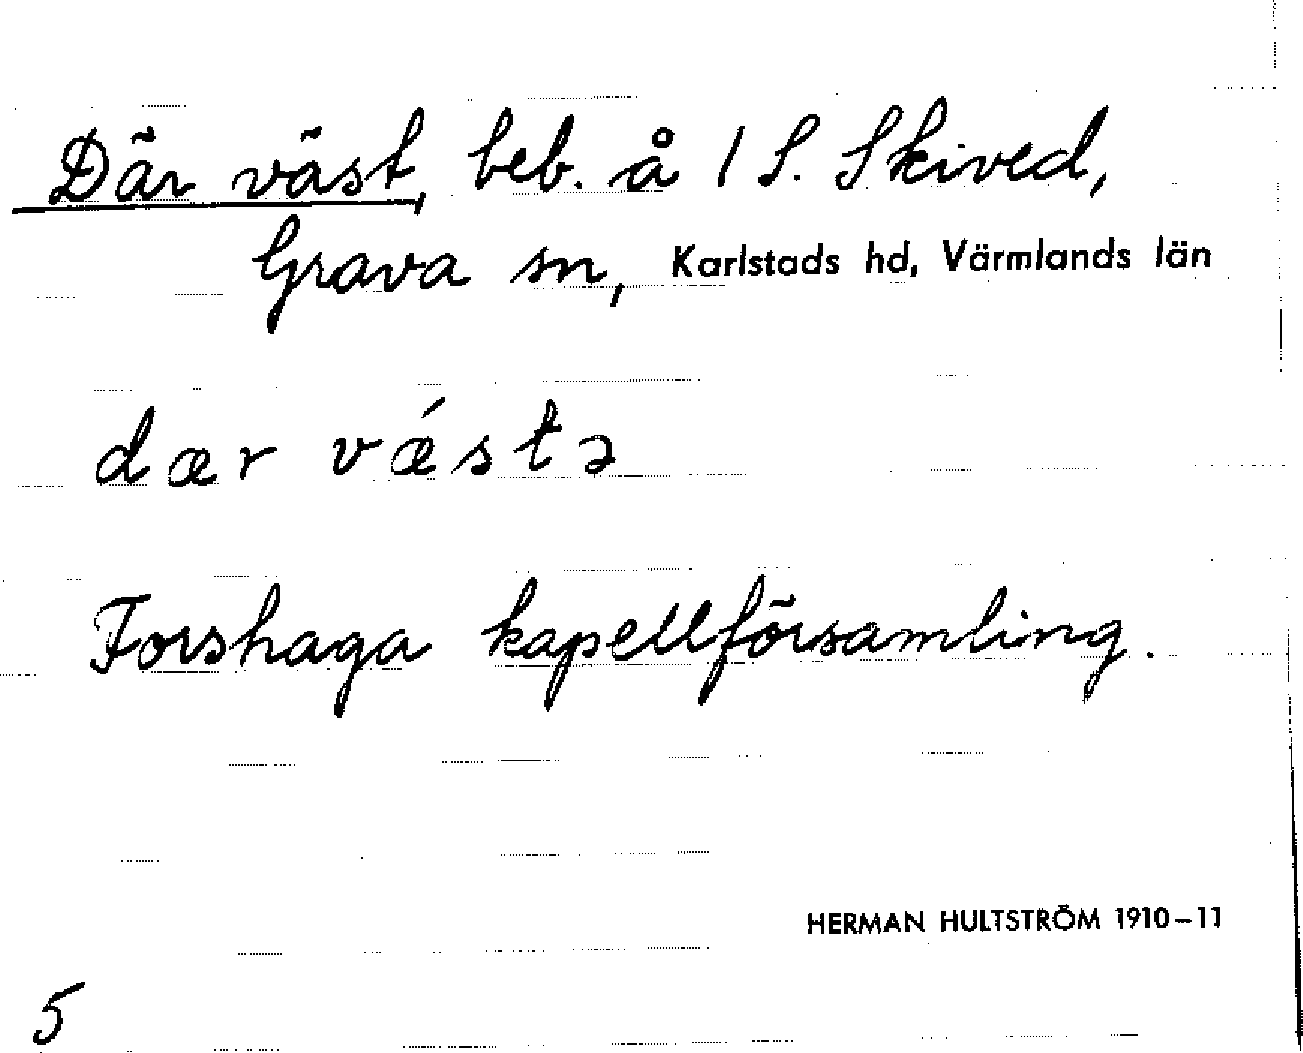 Där väst, beb. å 1 S. Skived,
Grava sn, Karlstads hd, Värmlands län
dær vǽstə
Forshaga kapellförsamling.
HERMAN HULTSTRÖM 1910–11
5